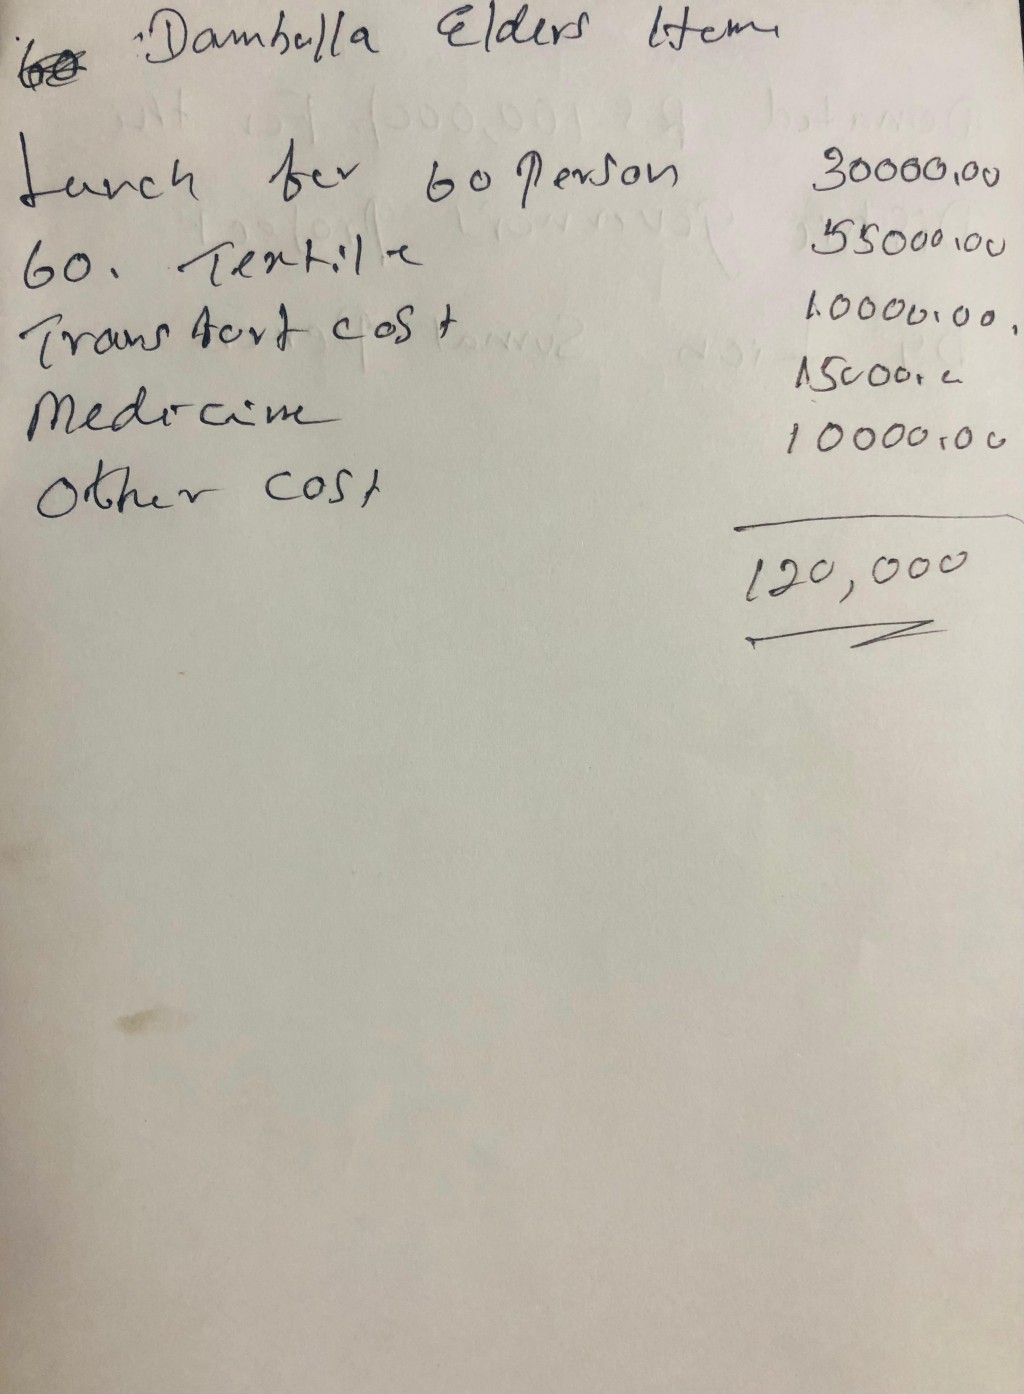 Dambulla Elders Home
Lunch for 60 Person 30000.00
60. Textile 55000.00
Transport cost 10000.00.
Medicine 15000.
Other cost 10000.00
120,000